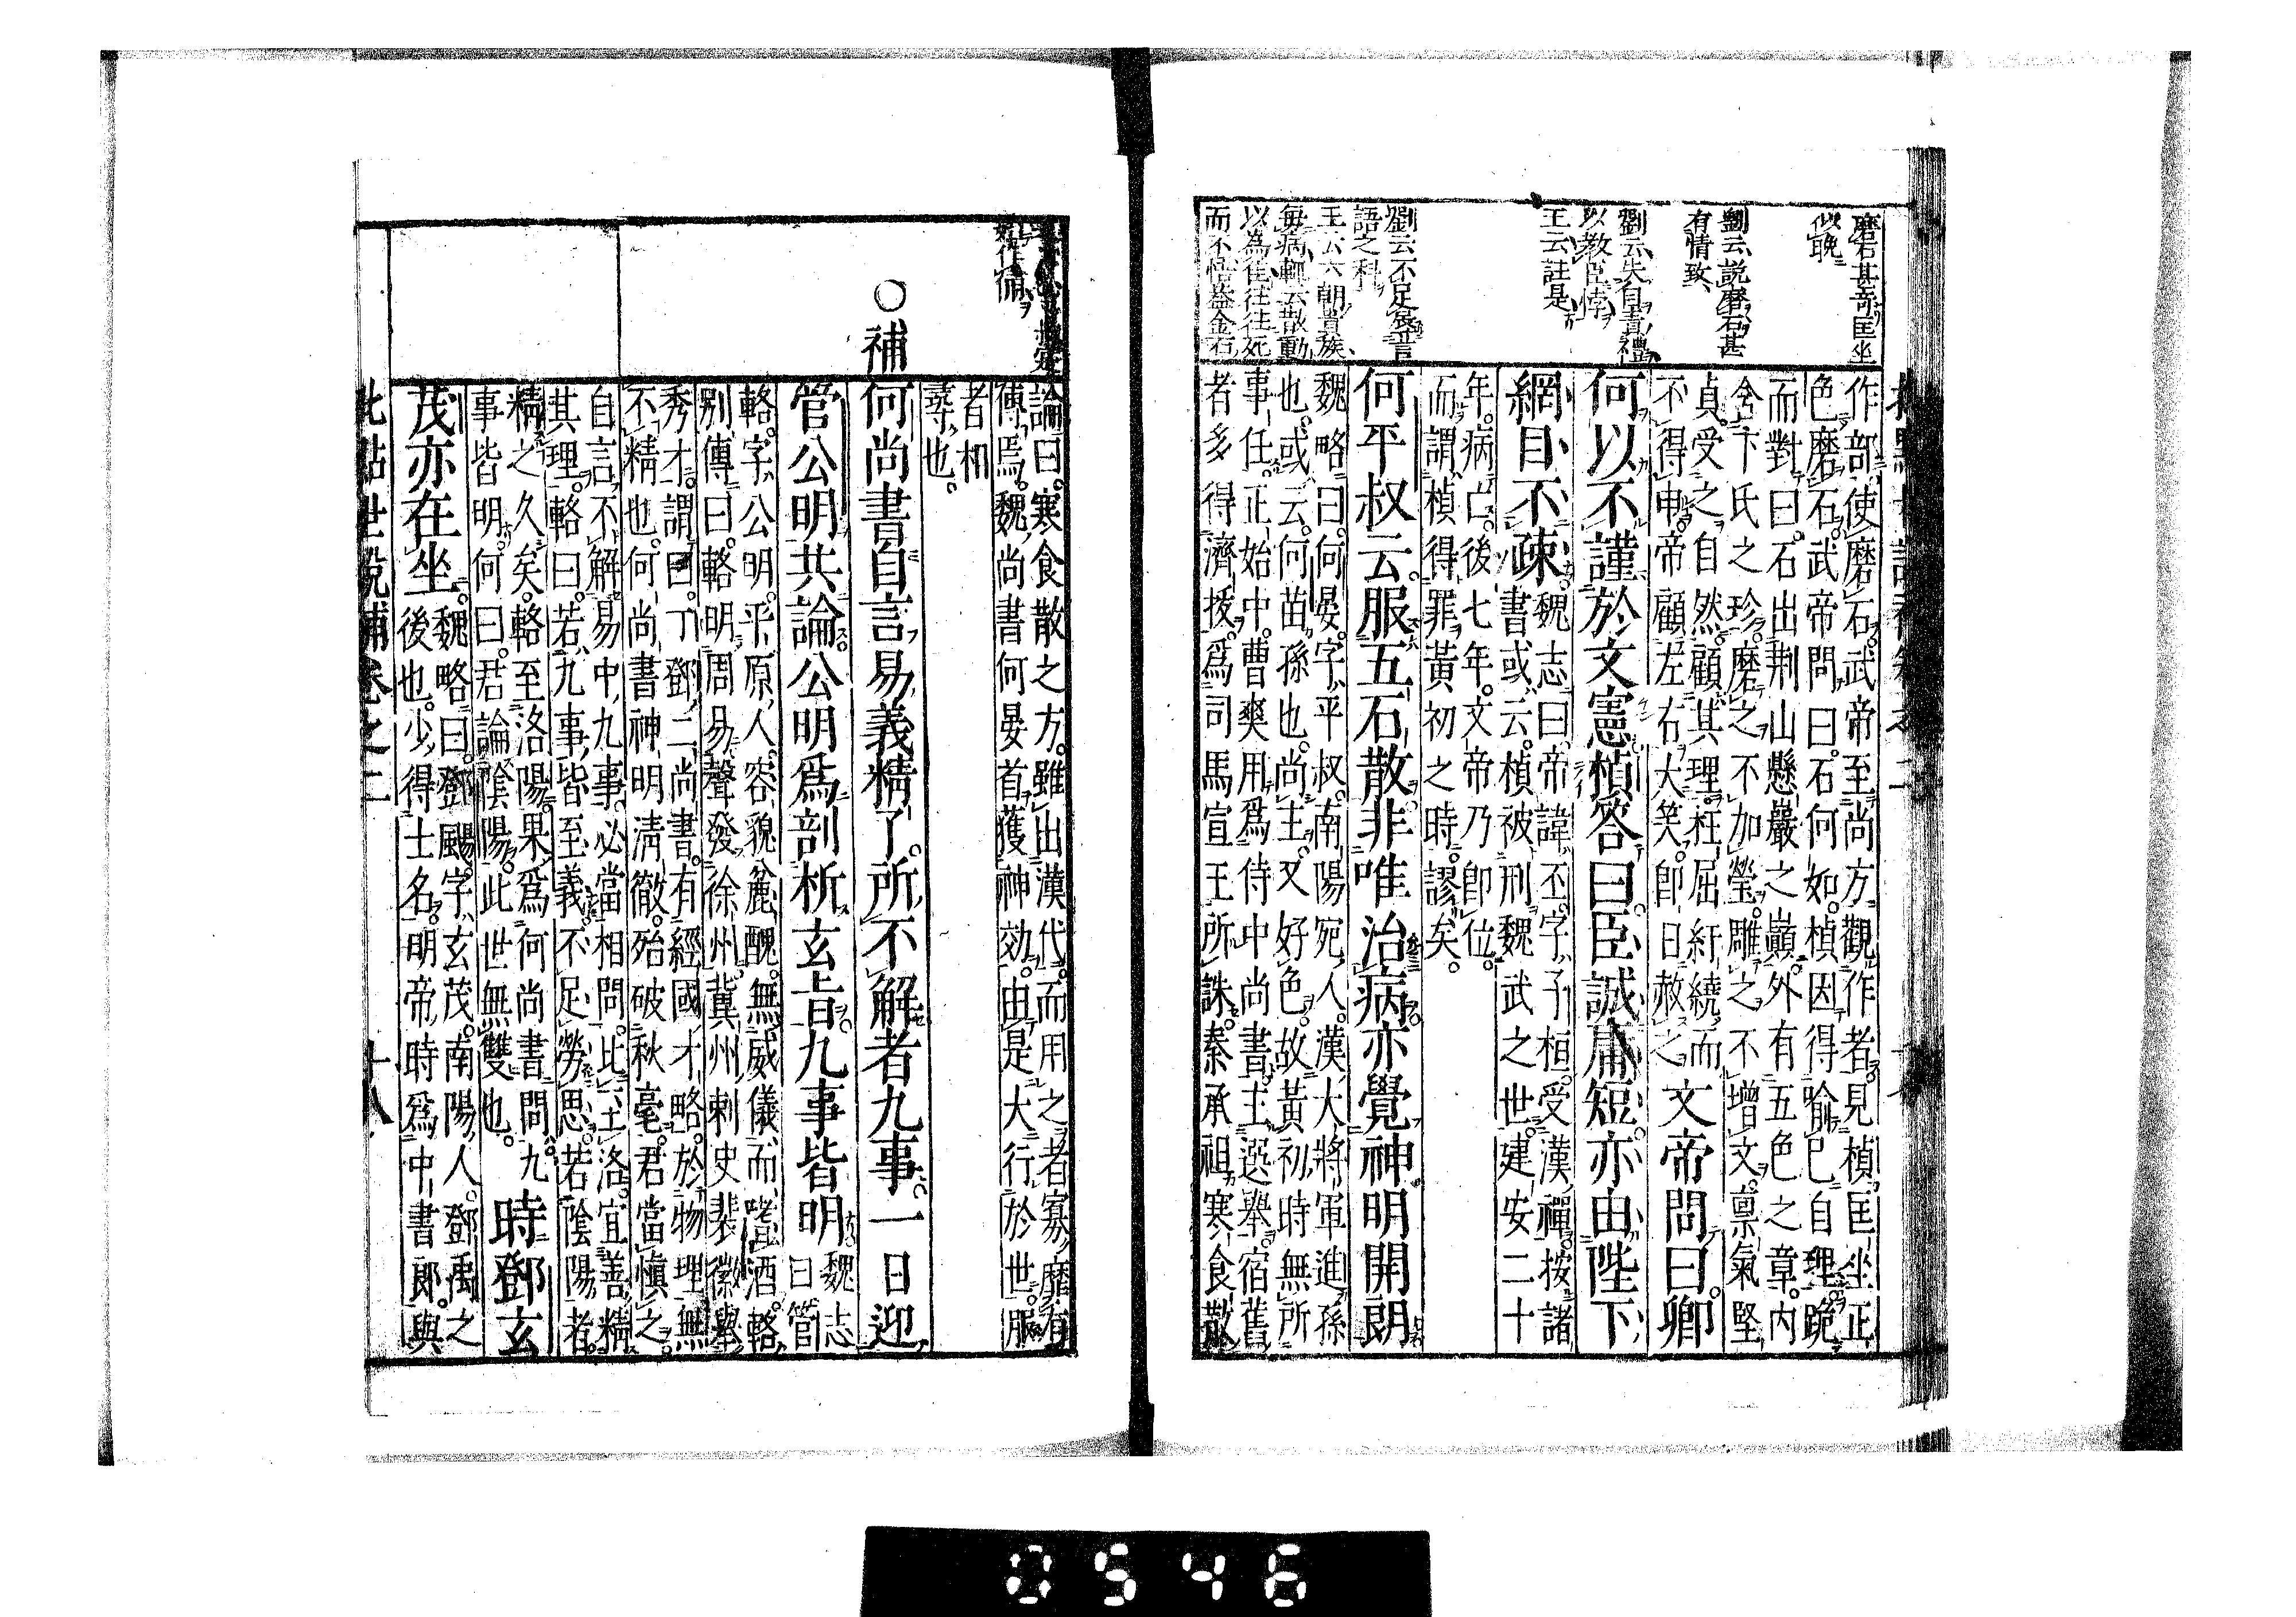 磨石甚奇匡坐
似晚
劉云說磨石甚
有情致
劉云失自責禮
以教臣悖
王云註是
劉云不足爲言
語之科
王云六朝貴族
每病輒云散動
以為佳往往死
而不悟蓋金石
作部使磨石武帝至尚方觀作者見楨匡坐正
色磨石武帝問曰石何如楨因得喻己自理跪
而對曰石出荆山懸巖之巔外有五色之章内
含卞氏之珍磨之不加瑩雕之不增文禀氣堅
貞受之自然顧其理枉屈紆繞而
不得申帝顧左右大笑即日赦之 文帝問曰卿
何以不謹於文憲楨答曰臣誠庸短亦由陛下
網目不疎魏志曰帝諱丕字子桓受漢禪按諸
書或云楨被刑魏武之世建安二十
年病亡後七年文帝乃即位
而謂楨得罪黄初之時謬矣
何平叔云服五石散非唯治病亦覺神明開朗
魏略曰何晏字平叔南陽宛人漢大將軍進孫
也或云何苗孫也尚主又好色故黃初時無所
事任正始中曹爽用爲侍中尚書主選舉宿舊
者多得濟拔爲司馬宣王所誅秦承祖寒食散
論曰寒食散之方雖出漢代而用之者寡靡有
傳焉魏尚書何晏首獲神効由是大行於世服
者相
尋也
○補
何尚書自言易義精了所不解者九事一日迎
管公明共論公明爲剖析玄旨九事皆明魏志
曰管
輅字公明平原人容貌麁醜無威儀而嗜酒輅
別傳曰輅明周易聲發徐州冀州刺史裴徽舉
秀才謂曰丁鄧二尚書有經國才略於物理無
不精也何尚書神明淸徹殆破秋毫君當愼之
自言不解易中九事必當相問比至洛宜善精
其理輅曰若九事皆至義不足勞思若陰陽者
精之久矣輅至洛陽果爲何尚書問九
事皆明何曰君論陰陽此世無雙也 時鄧玄
茂亦在坐魏略曰鄧颺字玄茂南陽人鄧禹之
後也少得士名明帝時爲中書郎與
批點世說補卷之二 十八